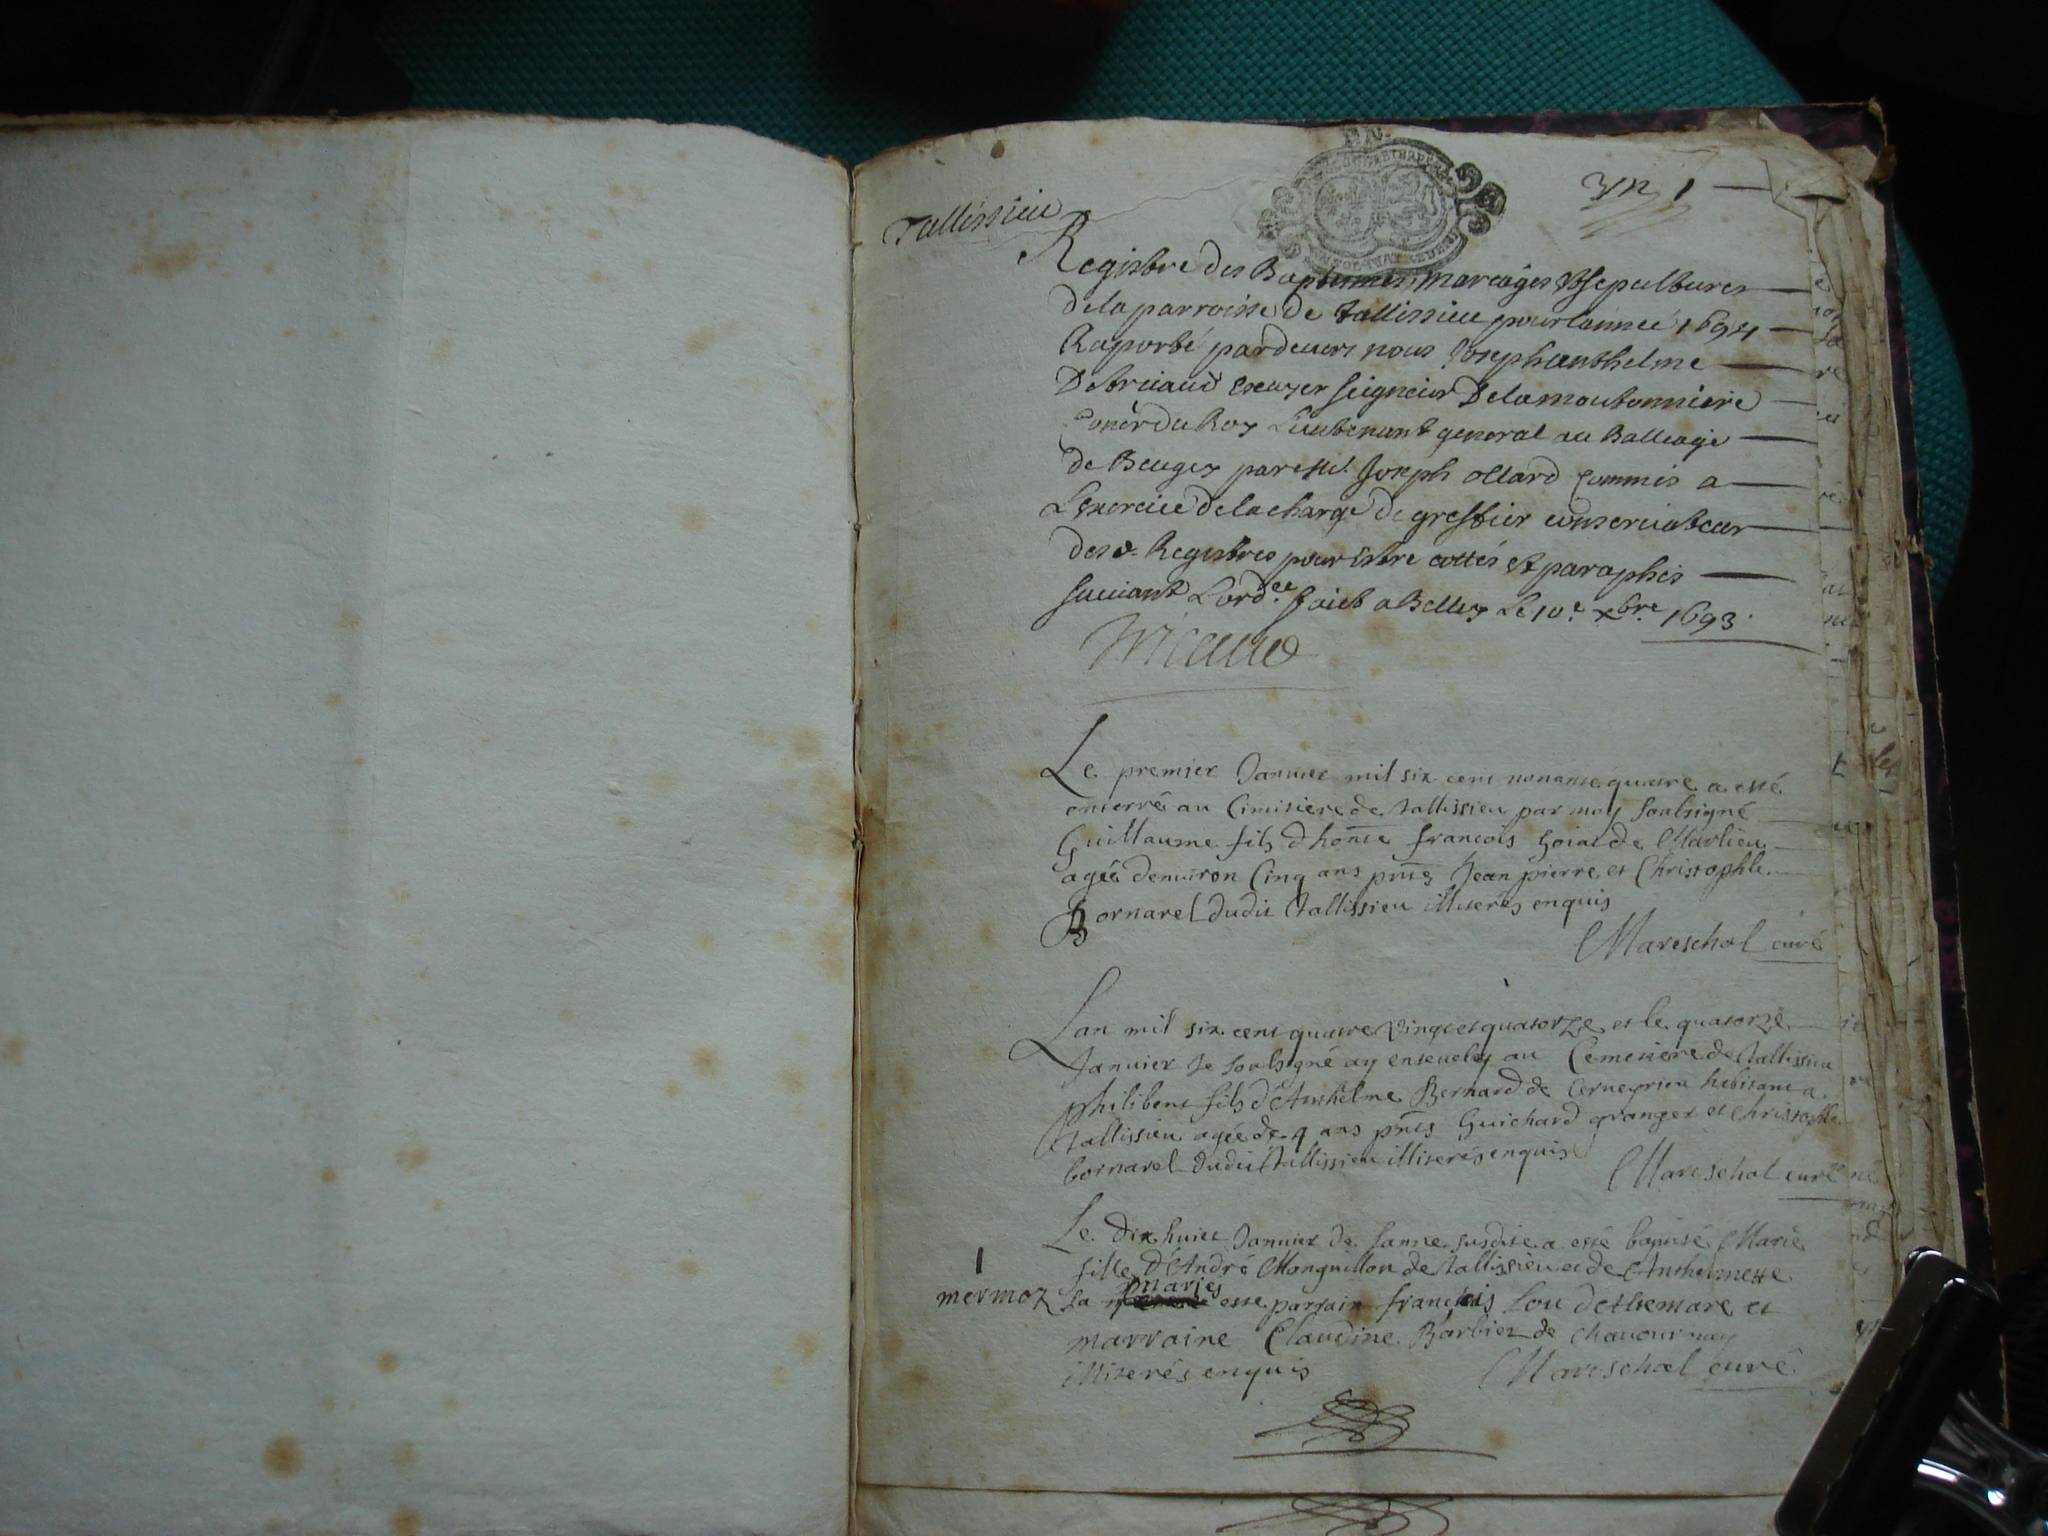 Tallissieu
Registre des Baptemes, mariages & sepultures
de la parroisse de tallissieu pour lannée 1694
Raporté pardevers nous Joseph anthelme
Escuyer Seigneur De la moutonniere
Coner du Roy Lieutenant general au Balliage
de Beugey par Me. Joseph ollard Commis a
Lexercice de la charge de greffier conservateur
desd. Registres pour estre cottés et paraphés
suivant Lord.ce faict a Belley Le 10.e xbre. 1693.
Le premier Janvier mil six cent nonante quatre a esté
enterré au Cimitiere de tallissieu par moy Soubsigné
Guillaume fils d'hon̄te francois de Marlieu
agée denviron Cinq ans pn̄ts Jean pierre et Christophle
Bornarel dudit tallissieu illiterés enquis
Mareschal curé
Lan mil six cent quatre vingt et quatorze et le quatorze
Janvier Je soubsigné ay ensevely au Cemetiere de tallissieu
philibert fils d'Anthelme Bernard de habitant a
tallissieu agée de 4 ans pn̄ts Guichard granger et Christophle
bornarel dudit tallissieu illiterés enquis
Mareschal curé
Le Dix huict Janvier de Lanne susdite a esté baptisé Marie
fille d'André Monguillon de tallissieu et de Anthelmette
mermoz sa mariés esté parrain francois Lou et
marraine Claudine Barbier de chavournay
illiterés enquis Mareschal curé